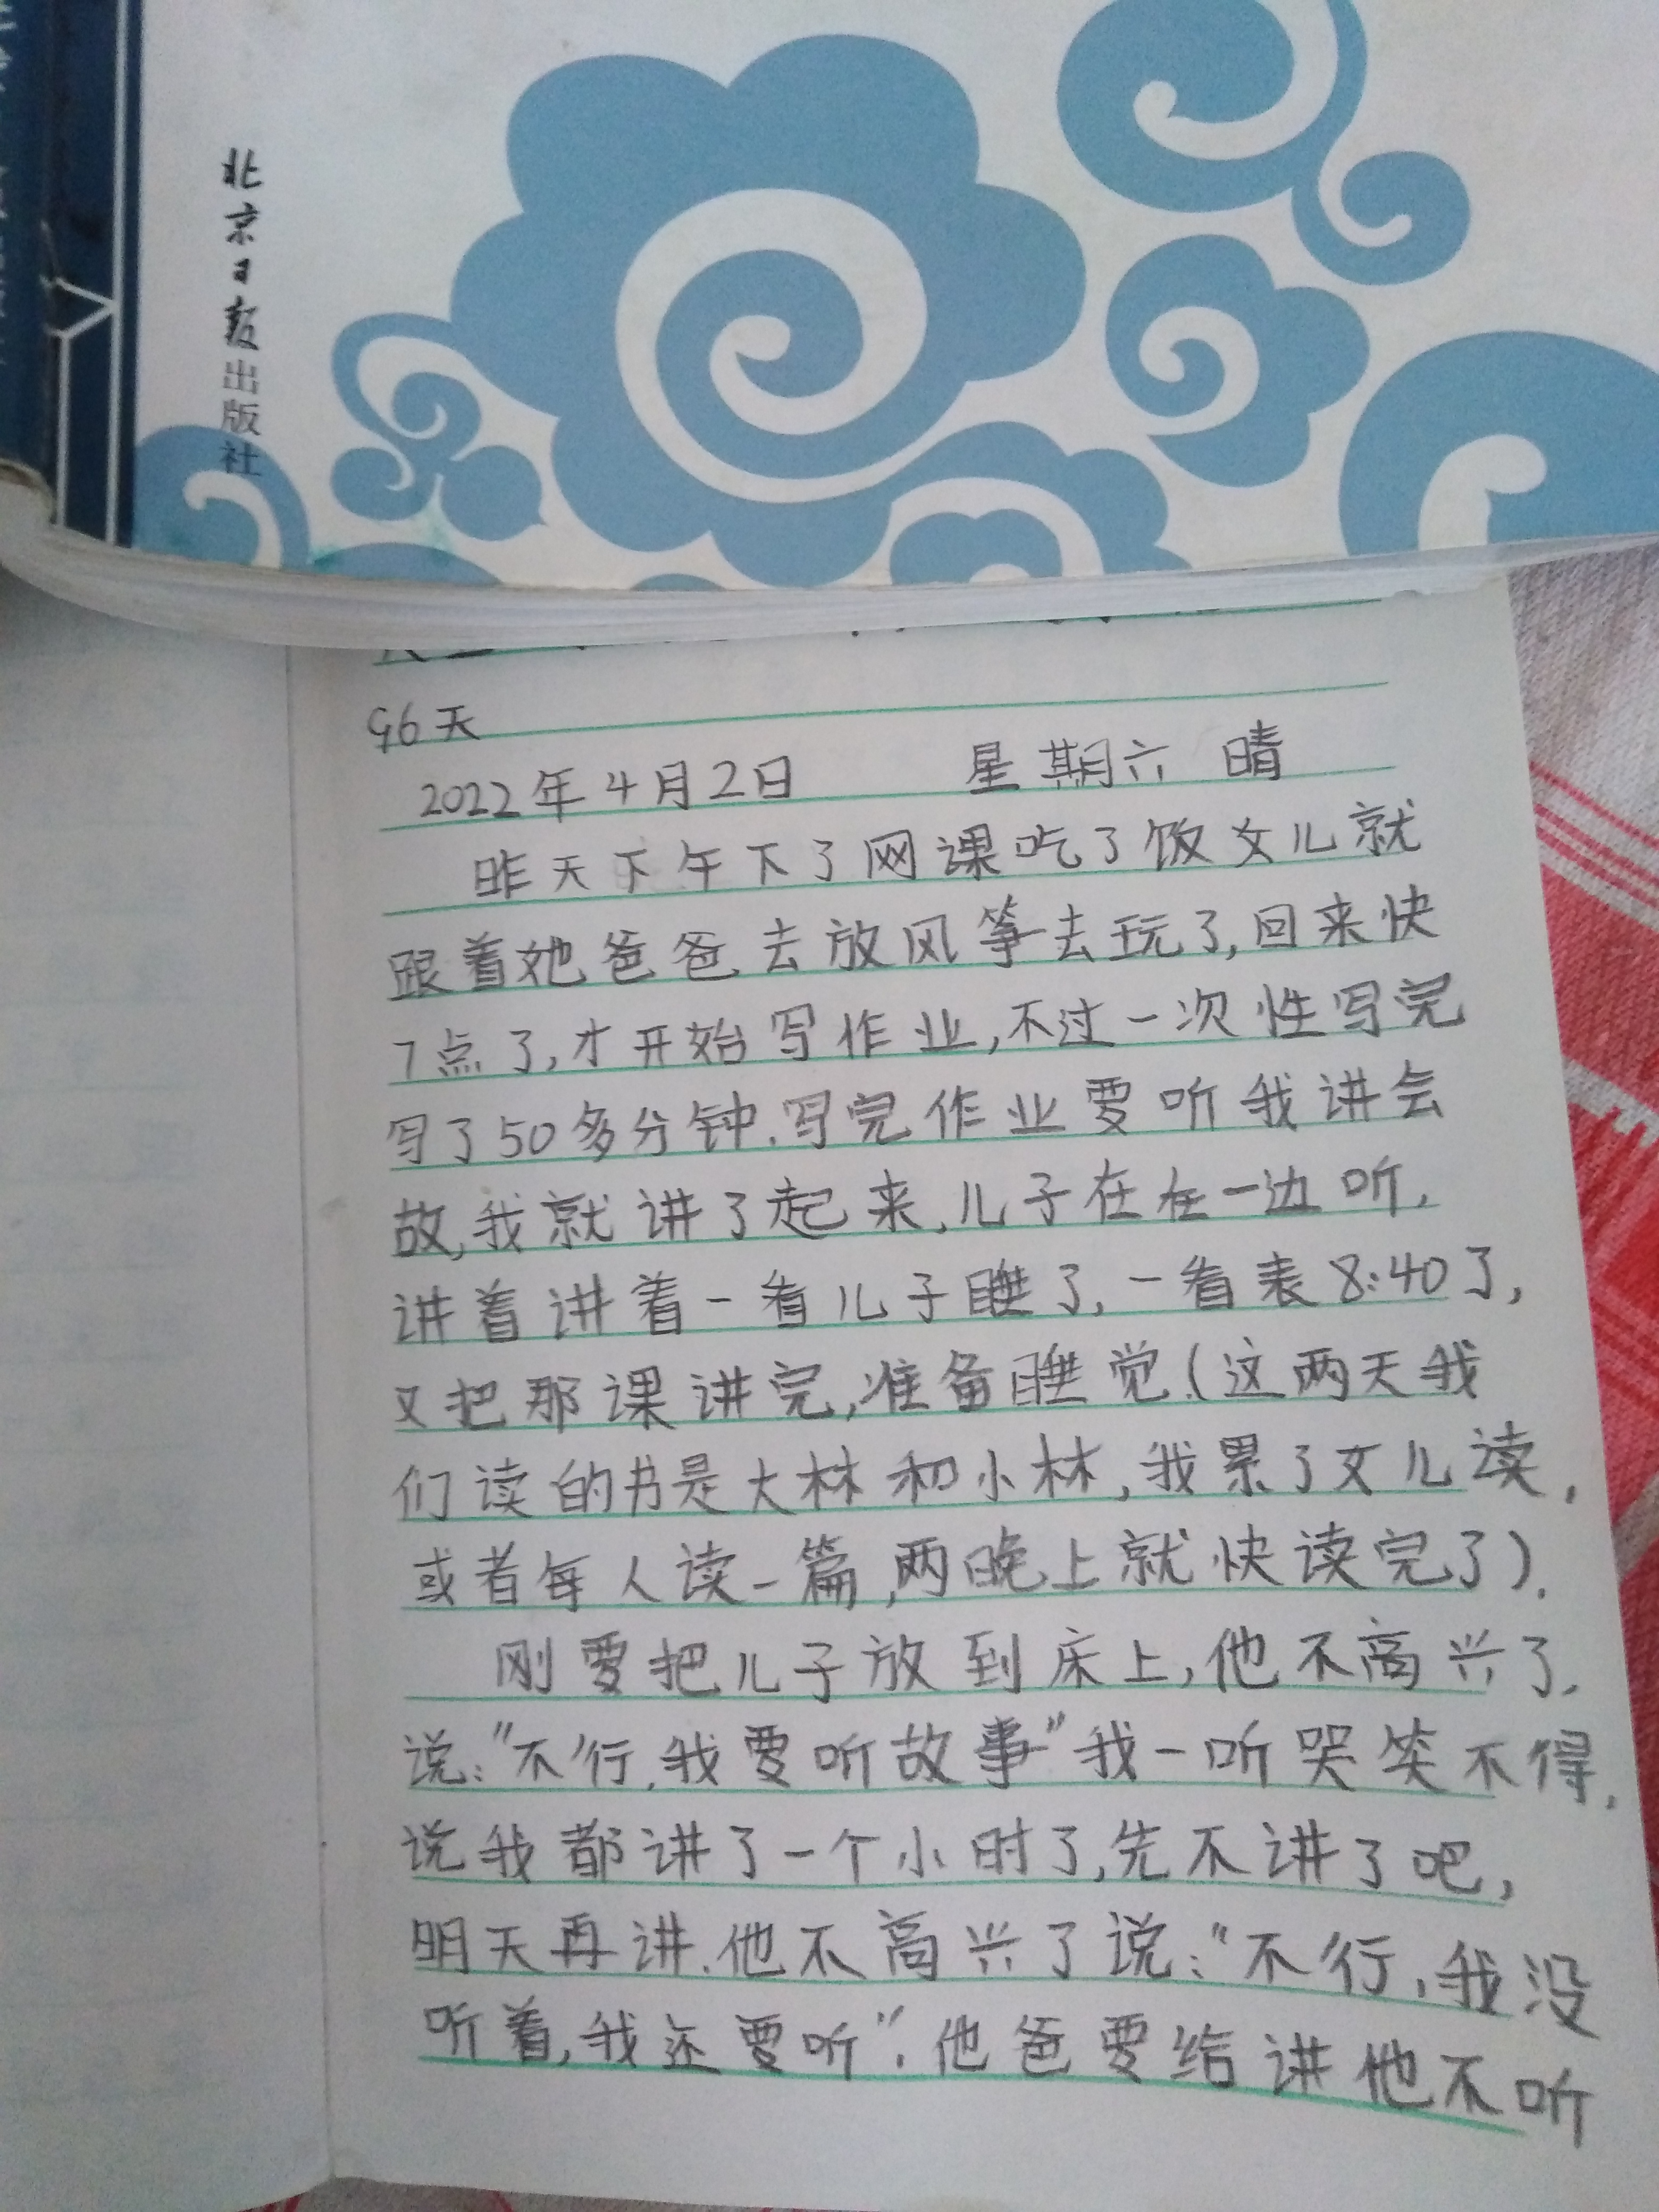 北京日报出版社
96天
2022年4月2日 星期六 晴
昨天下午下了网课吃了饭女儿就
跟着她爸爸去放风筝去玩了,回来快
7点了,才开始写作业,不过一次性写完
写了50多分钟.写完作业要听我讲会
故,我就讲了起来,儿子在在一边听,
讲着讲着一看儿子睡了,一看表8:40了,
又把那课讲完,准备睡觉.(这两天我
们读的书是大林和小林,我累了女儿读,
或者每人读一篇,两晚上就快读完了).
刚要把儿子放到床上,他不高兴了,
说:"不行,我要听故事"我一听哭笑不得,
说我都讲了一个小时了,先不讲了吧,
明天再讲.他不高兴了说:"不行,我没
听着,我还要听".他爸要给讲他不听